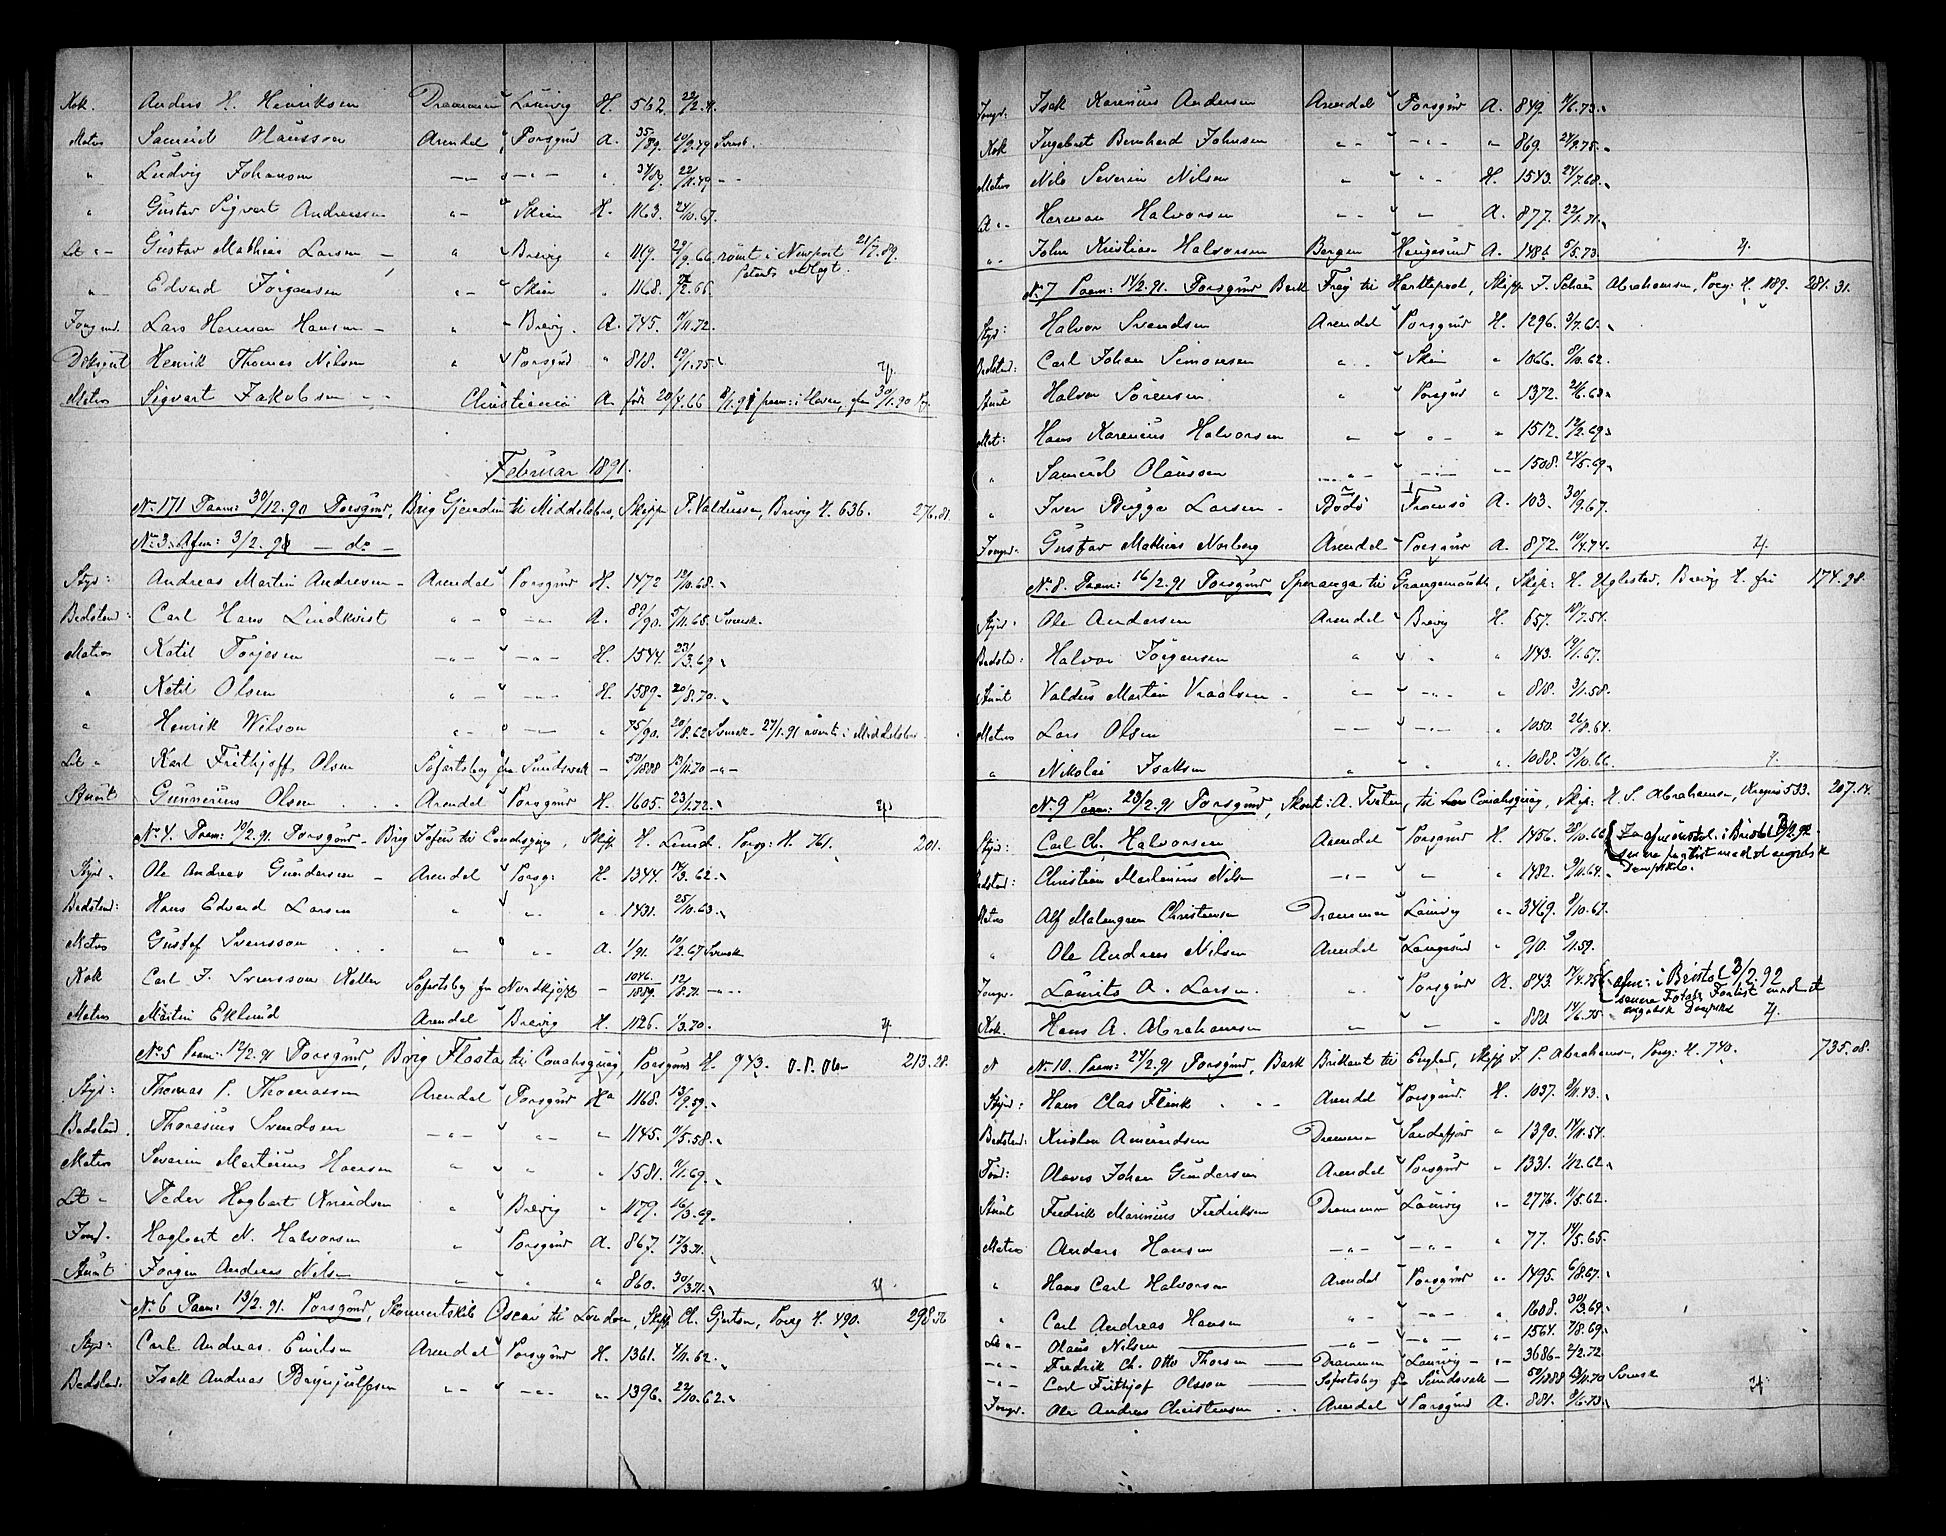 Kok. Anders H. Henriksen Drammen Laurvig H. 562. 22/2.
Matros Samuel Olausson Arendel Porsgrund A. 35/89. 10/9.79 Svensk.
" Ludvig Johanson -"- -"- " 34/89. 22/11.49 - -
" Gustav Sigvart Andreassen "- Skien H. 1163. 24/10.67.
Let "- Gustav Mathias Larsen " Brevig " 1119. 29/9.66 rømt i Newport 21/7.89.
" Edvard Jørgensen "- Skien " 1168. 2.66.
Jungmd. Lars Herman Hansen - " Brevig. A. 745. 11.72.
Dæksgut Henrik Thomas Nilsen " Porsgrund " 818. 19/1.75.
Matros Sigvart Jakobsen Christiania A. født 20/4.66
Februar 1891.
No 171 Paam: 30/12.90 Porsgrund, Brig Gjenden til Middelsbro, Skipp P. Valdersen, Brevig H. 636. 276.81
No 3. Afm: 3/2.91 - do -
Styr: Andreas Martin Andresen - Arendel Porsgrund H. 1472 19/10.68.
Bedstmd: Carl Hans Lindkvist "- -"- A. 89/90. 5/11.65. Svensk.
Matros Ketil Torjesen -"- -"- H. 1544. 23/3.69
" Ketil Olsen "- -"- H. 1589. 20/8.70.
" Henrik Nilson "- -"- " 75/90. 20/8.62 Svensk - 27/1.91 rømt i Middelsbro.
Let " Karl Frithjoff Olsen Søfartsbog fra Sundsvall - 50/1888 13/11.70 -"-
Stuert Gunnerius Olsen . . . Arendel Porsgrund H. 1605. 23/1.72.
No 4. Paam: 10/2.91 Porsgrund - Brig Jofur til Conahsquay, Skipp. H. Lund. Porsg: H. 761. 201.
Styr. Ole Andreas Gundersen - Arendel Porsg: H. 1344. 14/3.62.
Bedstmd: Hans Edvard Larsen " " " 1431. 25/10.63.
Matros Gustaf Svensson . . . "- "- A. 1/91. 10/2.67 Svensk
Kok Carl J. Svensson Søfartsbog fra - 1046/1889. 12/8.71. -"-
Matros Martin Eklund Arendel Brevig H. 1126. 1/3.70.
No 5 Paam: 12/2.91 Porsgrund, Brig Flosta til Conahsquay, Porsgrund H. 943. 213.28.
Styr: Thomas P. Thomassen Arendel Porsgrund H. 1168. 13/9.59.
Bedstmd. Thorsius Svendsen -"- "- "- 1145. 11/5.58.
Matros Severin Martinius Hansen " " " 1581. 9/1.69.
Let " Peder Hagbart Knudsen " Brevig " 1179. 16/3.69.
Jmd. Hagbart N. Halvorsen " Porsgrund A. 867. 17/3.71.
Stuert Jørgen Andreas Nilsen "- " " 860. 30/3.71.
No 6 Paam: 13/2.91. Porsgrund, Skonnertskib Oscar til London, Skipp Ch. Gjertsen, Porsg H. 490. 298.56
Styr: Carl Andreas Emilsen Arendel Porsgrund H. 1361. 4/11.62.
Bedstmd. Isak Andreas Brynjulfsen "- -"- "- 1396. 22/10.62.
Jungm: Isak Karenius Andersen Arendel Porsgrund A. 849. 9/6.73.
Kok Ingebret Bernhard Johnsen "- -"- " 869. 24/9.75.
Matros Nils Severin Nilsen " "- H. 1543. 24/7.68.
Let "- Herman Halvorsen "- "- A. 877. 22/1.71.
"- John Kristian Halvorsen Bergen Haugesund A. 1486. 5/5.73.
No 7 Paam: 14/2.91. Porsgrund Bark Freg til Hartlepool, Skipp. J. Schau Abrahamsen, Porsg: H. 189. 281.31.
Styr: Halvor Svendsen Arendel Porsgrund H. 1296. 3/7.61.
Bedstmd: Carl Johan Simonsen "- Skien " 1066. 8/10.62.
Stuert Halvor Sørensen " Porsgrund " 1372. 24/6.68.
Mat: Hans Karenius Halvorsen "- "- " 1512. 12/2.69.
" Samuel Olaussen "- -"- "- 1508. 24/5.69.
" Iver Bugge Larsen - Bodø Tromsø A. 103. 30/9.67.
Jungm. Gustav Mathias Norberg Arendel Porsgrund A. 872. 10/4.74.
No 8. Paam: 16/2.91 Porsgrund Speranza til Grangemouth, Skip: H. Uglestad, Brevig H. fri 174.98.
Styr. Ole Andersen Arendel Brevig H. 657. 18/7.54.
Bedstmd: Halvor Jørgensen " " " 1143. 19/1.67.
Stuert Valdus Martin Vraalsen - "- -"- " 818. 3/1.58.
Matros Lars Olsen -"- -"- " 1050. 26/8.64.
" Nikolai Isaksen " " ". 1088. 13/10.66.
No 9 Paam: 23/2.91 Porsgrund, Skont: A. til Conahsquay, Skip: H. S. Abrahamsen, Kragerø 533. 207.14.
Styr: Carl Ch. Halvorsen Arendel Porsgrund H. 1456. 28/10.66
Bedstmd: Christian Martinius Nilsen -"- " " 1482. 9/11.64.
Matros Alf Malmgren Christensen Drammen Laurvig "- 3469. 9/10.67.
" Ole Andreas Nilsen Arendel Langesund " 910. 9/11.59.
Jungm. Laurits A. Larsen. "- Porsgrund A. 843. 14/4.75 afm: i Bristol 3/2.92
Kok. Hans A. Abrahamsen "- "- " 880 14/6.75.
No 10. Paam: 24/2.91 Porsgrund, Bark Brillant til England, Skipp J. P. Abrahamsen, Porsg: H. 740. 735.08.
Styr: Hans Clas Flink . - - Arendel Porsgrund. H. 1037. 9/11.43.
Bedstmd: Kristen Amundsen Drammen Sandefjord " 1390. 14/11.54.
Tømd: Olaves Johan Gundersen Arendel Porsgrund " 1331. 1/12.62.
Stuert Fredrik Marinius Fredriksen Drammen Laurvig "- 2776. 11/5.62.
Matros Anders Hansen -"- -"- " 77. 14/5.65.
" Hans Carl Halvorsen Arendel Porsgrund "- 1495. 6/8.67.
" Carl Andreas Hansen "- -"- " 1608. 30/3.69.
Let "- Olaus Nilsen -"- -"- "- 1564. 7/8.69.
-"- Fredrik Ch. Otto Thorsen Drammen Laurvig - "- 3686- 2/2.72
-"- Carl Frithjof Olsson Søfartsbog fra Sundsvall - 50/1888 13/11.70 Svensk
Jungm. Ole Andreas Christensen " " Arendel Porsgrund A. 881. 9/6.73.